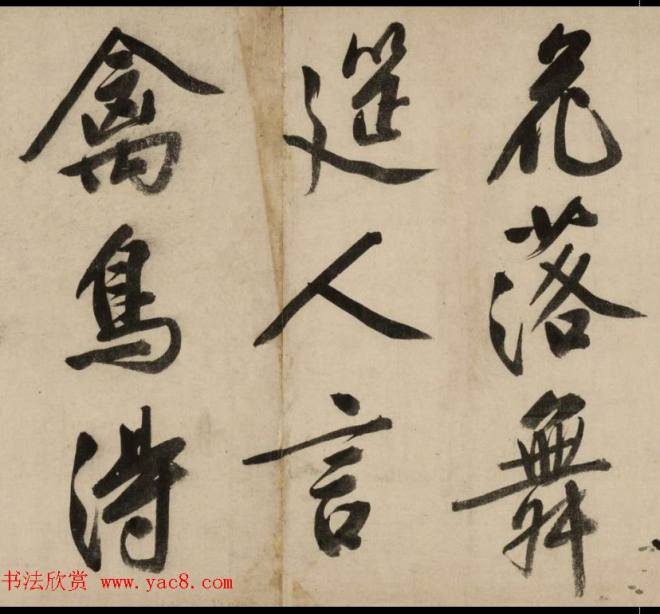 花落舞
筵人言
禽鳥得
书法欣赏 www.yac8.com